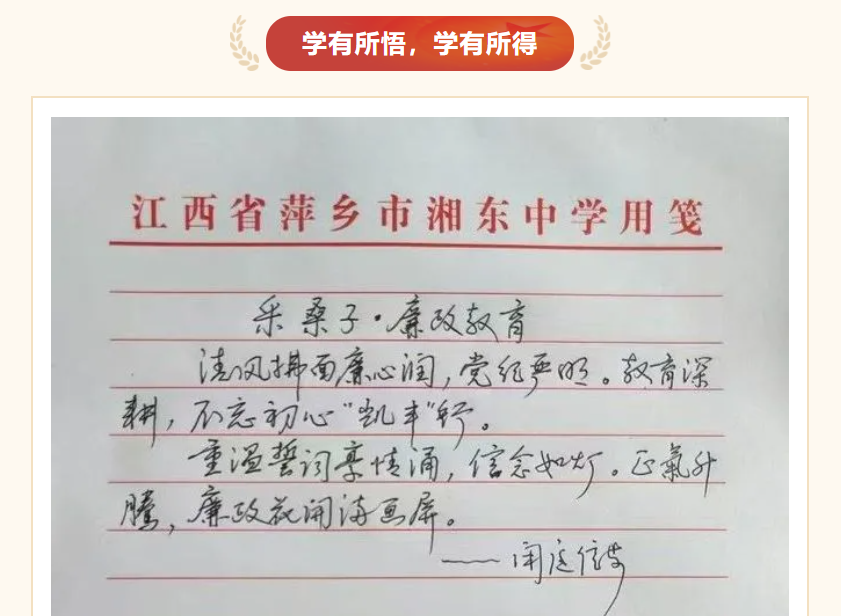 学有所悟，学有所得
江西省萍乡市湘东中学用笺
采桑子·廉政教育
清风拂面廉心润，党纪严明。教育深
耕，不忘初心“凯丰”行。
重温誓词豪情涌，信念如灯。正氣升
腾，廉政花开满画屏。
——闲庭信步